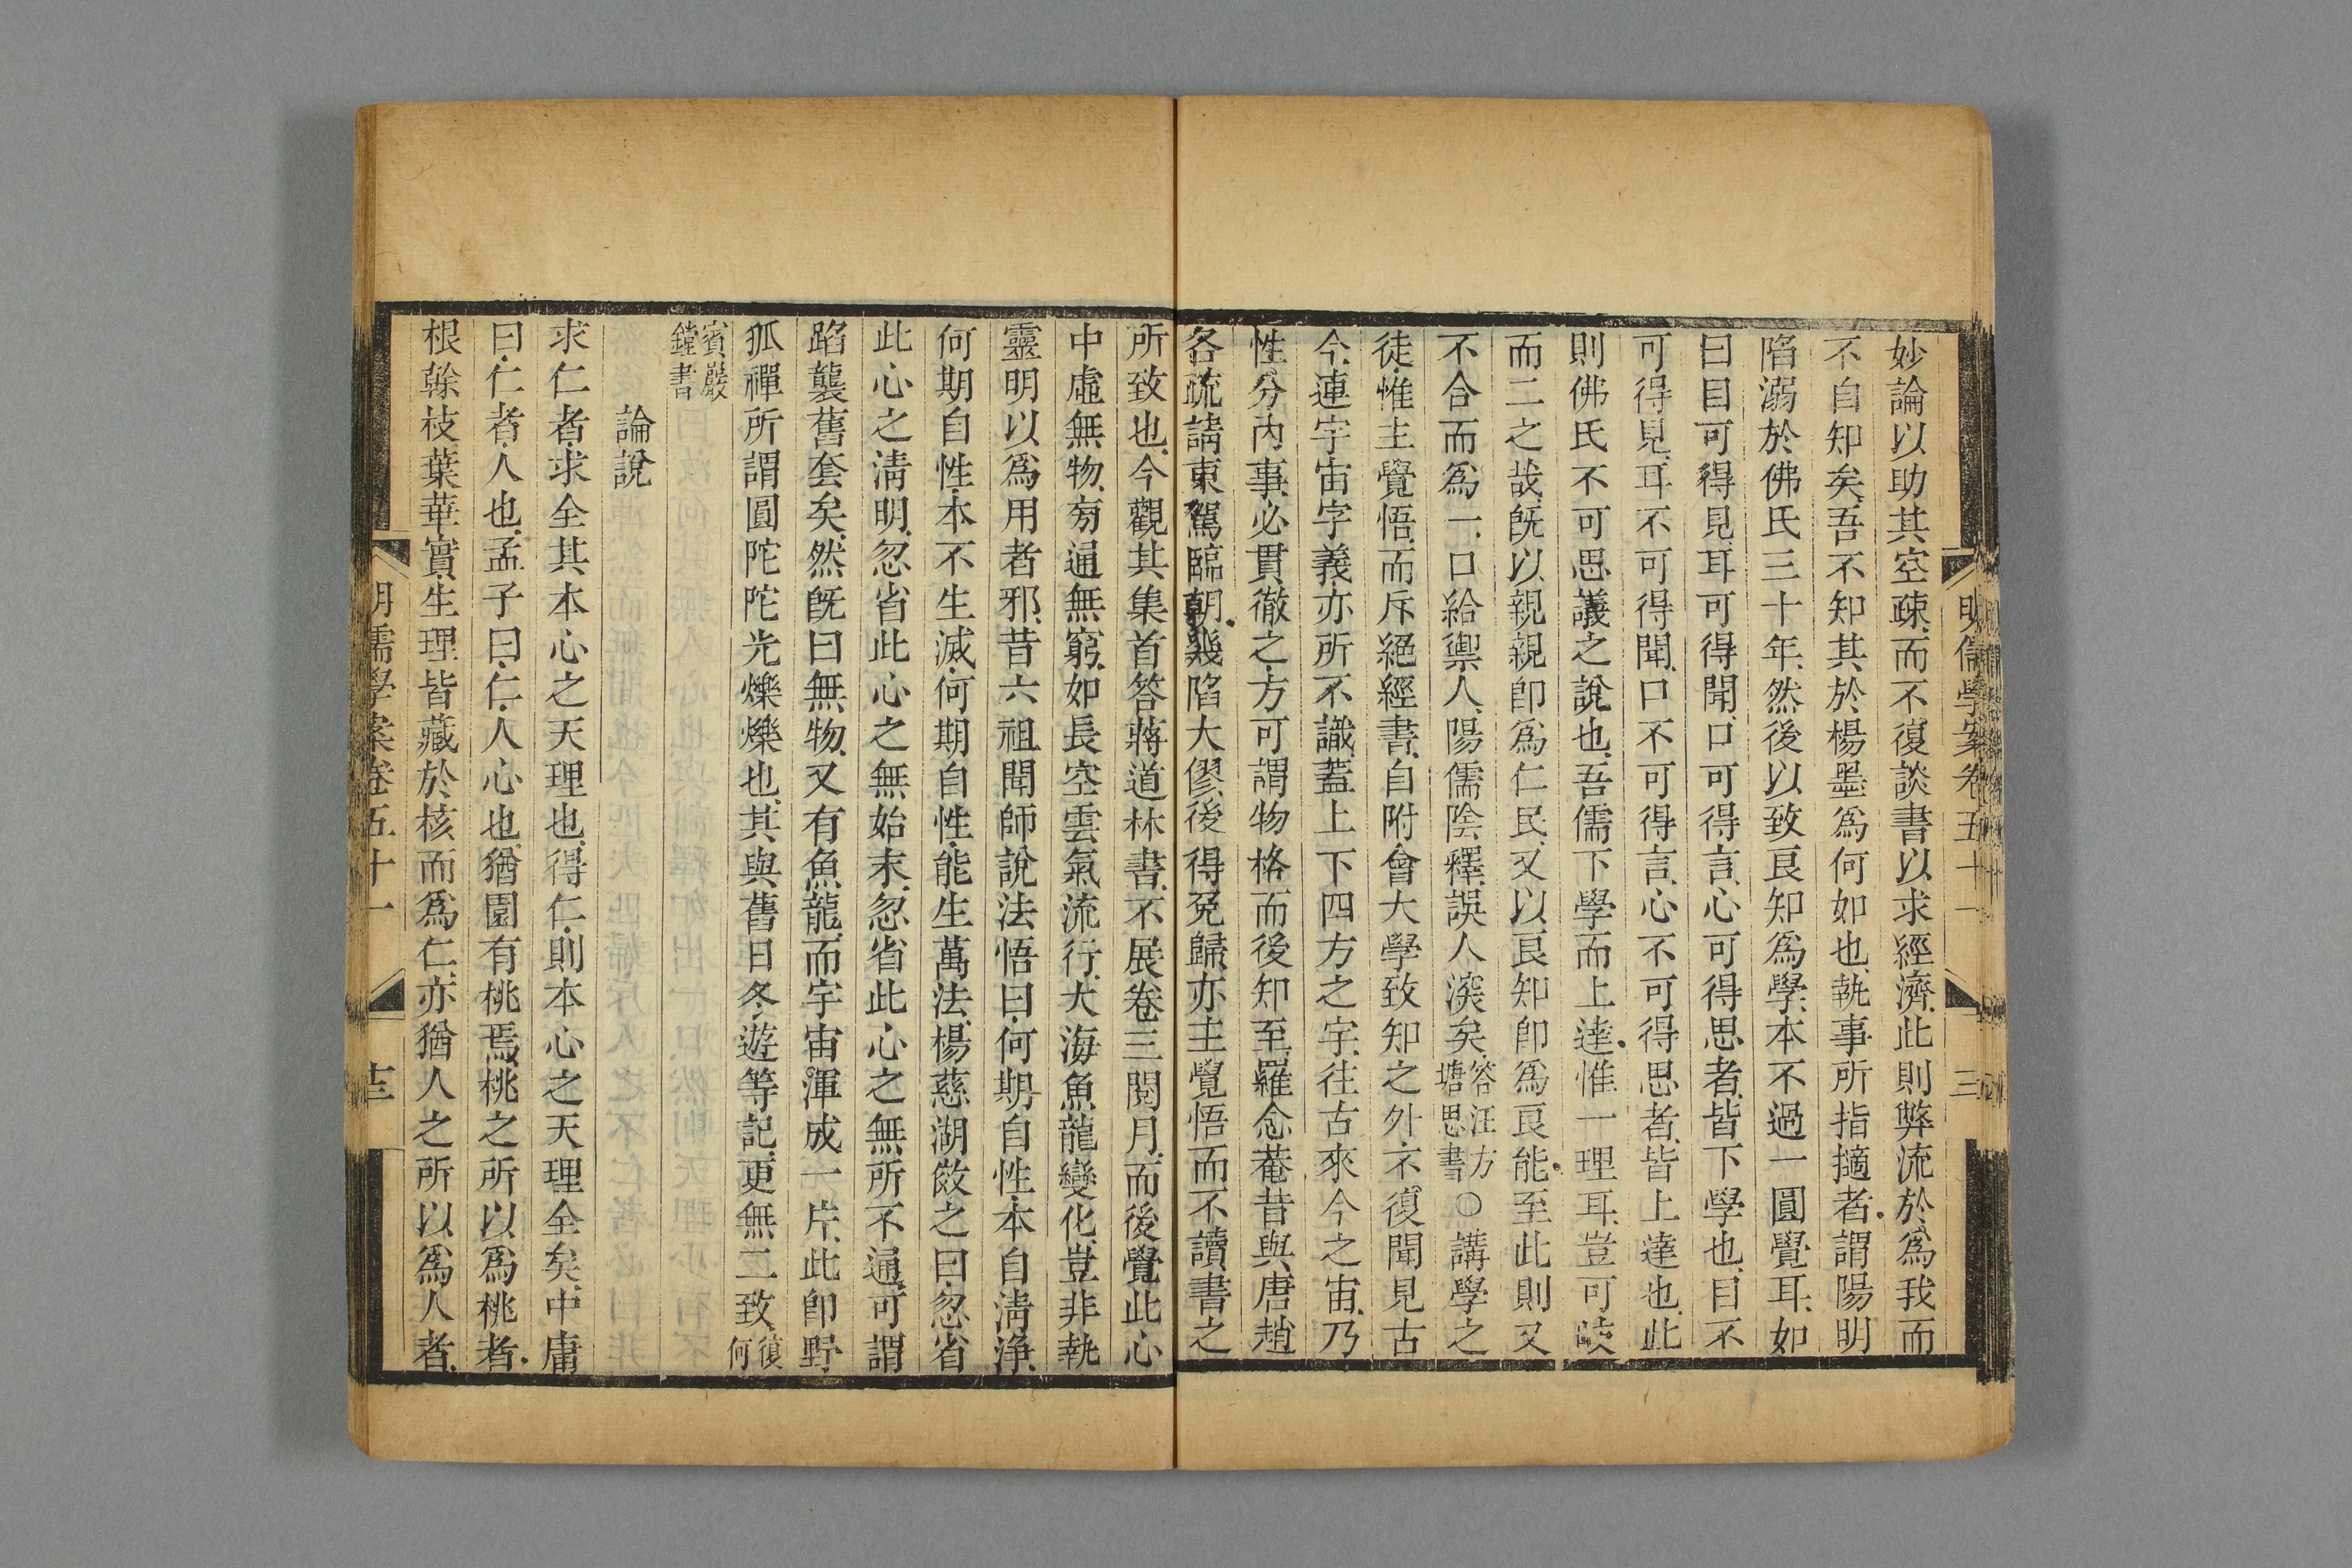 明儒學案卷五十一
三
妙論以助其空疎而不復談書以求經濟此則弊流於爲我而
不自知矣吾不知其於楊墨爲何如也執事所指擿者謂陽明
陷溺於佛氏三十年然後以致良知爲學本不過一圓覺耳如
曰目可得見耳可得聞口可得言心可得思者皆下學也目不
可得見耳不可得聞口不可得言心不可得思者皆上達也此
則佛氏不可思議之說也吾儒下學而上達惟一理耳豈可岐
而二之哉旣以親親卽爲仁民又以良知卽爲良能至此則又
不合而爲一口給禦人陽儒陰釋誤人深矣答汪方塘思書○講學之
徒惟主覺悟而斥絕經書自附會大學致知之外不復聞見古
今連宇宙字義亦所不識蓋上下四方之宇往古來今之宙乃
性分內事必貫徹之方可謂物格而後知至羅念菴昔與唐趙
各疏請東駕臨朝幾陷大僇後得免歸亦主覺悟而不讀書之
所致也今觀其集首答蔣道林書不展卷三閱月而後覺此心
中虛無物旁通無窮如長空雲氣流行大海魚龍變化豈非執
靈明以爲用者邪昔六祖聞師說法悟曰何期自性本自淸淨
何期自性本不生滅何期自性能生萬法楊慈湖敚之曰忽省
此心之淸明忽省此心之無始末忽省此心之無所不通可謂
蹈襲舊套矣然旣曰無物又有魚龍而宇宙渾成一片此卽野
狐禪所謂圓陀陀光爍爍也其與舊日冬遊等記更無二致復何
賓巖鏜書
論說
求仁者求全其本心之天理也得仁則本心之天理全矣中庸
曰仁者人也孟子曰仁人心也猶園有桃焉桃之所以爲桃者
根榦枝葉華實生理皆藏於核而爲仁亦猶人之所以爲人者
明儒學案卷五十一
十三